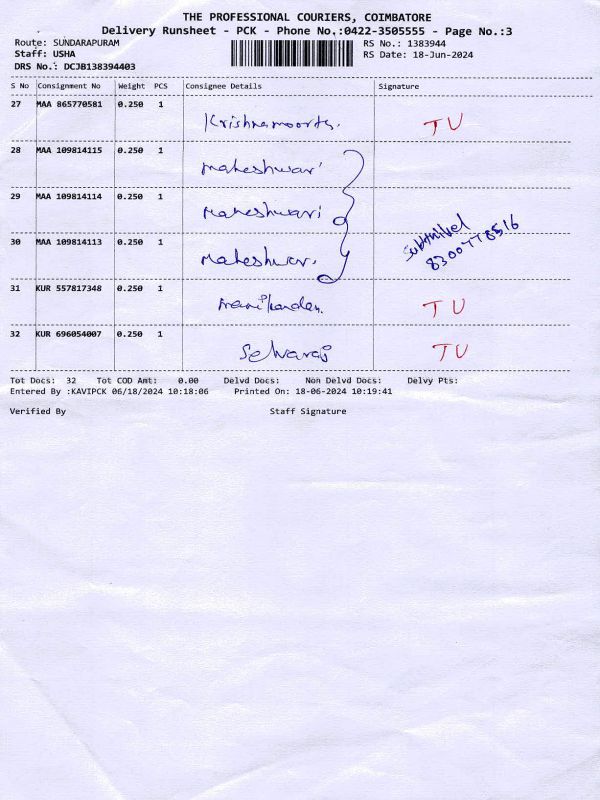 THE PROFESSIONAL COURIERS, COIMBATORE
Delivery Runsheet - PCK - Phone No.:0422-3505555 - Page No.:3
Route: SUNDARAPURAM
RS No.: 1383944
Staff: USHA
RS Date: 18-Jun-2024
DRS No.: DCJB138394403
S No Consignment No Weight PCS Consignee Details Signature
27 MAA 865770581 0.250 1
Krishnamoorthy. TU
28 MAA 109814115 0.250 1
Maheshwari
29 MAA 109814114 0.250 1
Maheshwari
30 MAA 109814113 0.250 1
Maheshwari
8300778516
31 KUR 557817348 0.250 1
Manikandan. TU
32 KUR 696054007 0.250 1
Selvaraj TU
Tot Docs: 32 Tot COD Amt: 0.00 Delvd Docs: Non Delvd Docs: Delvy Pts:
Entered By :KAVIPCK 06/18/2024 10:18:06 Printed On: 18-06-2024 10:19:41
Verified By Staff Signature